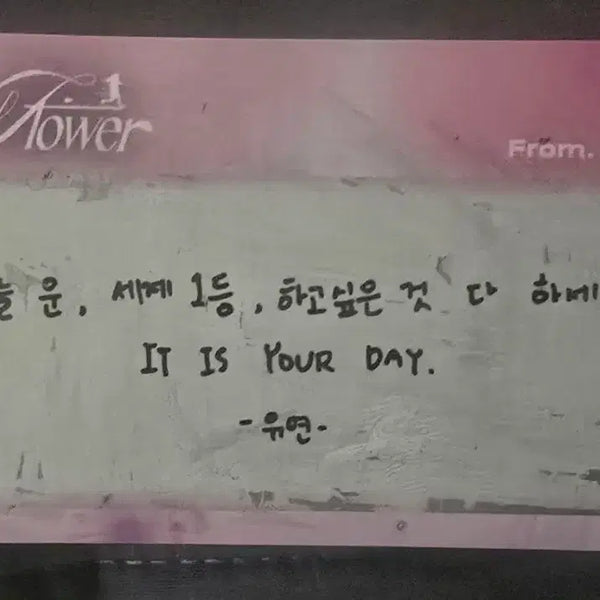 Flower
From.
운, 세계 1등, 하고싶은 것 다
IT IS YOUR DAY.
-유연-